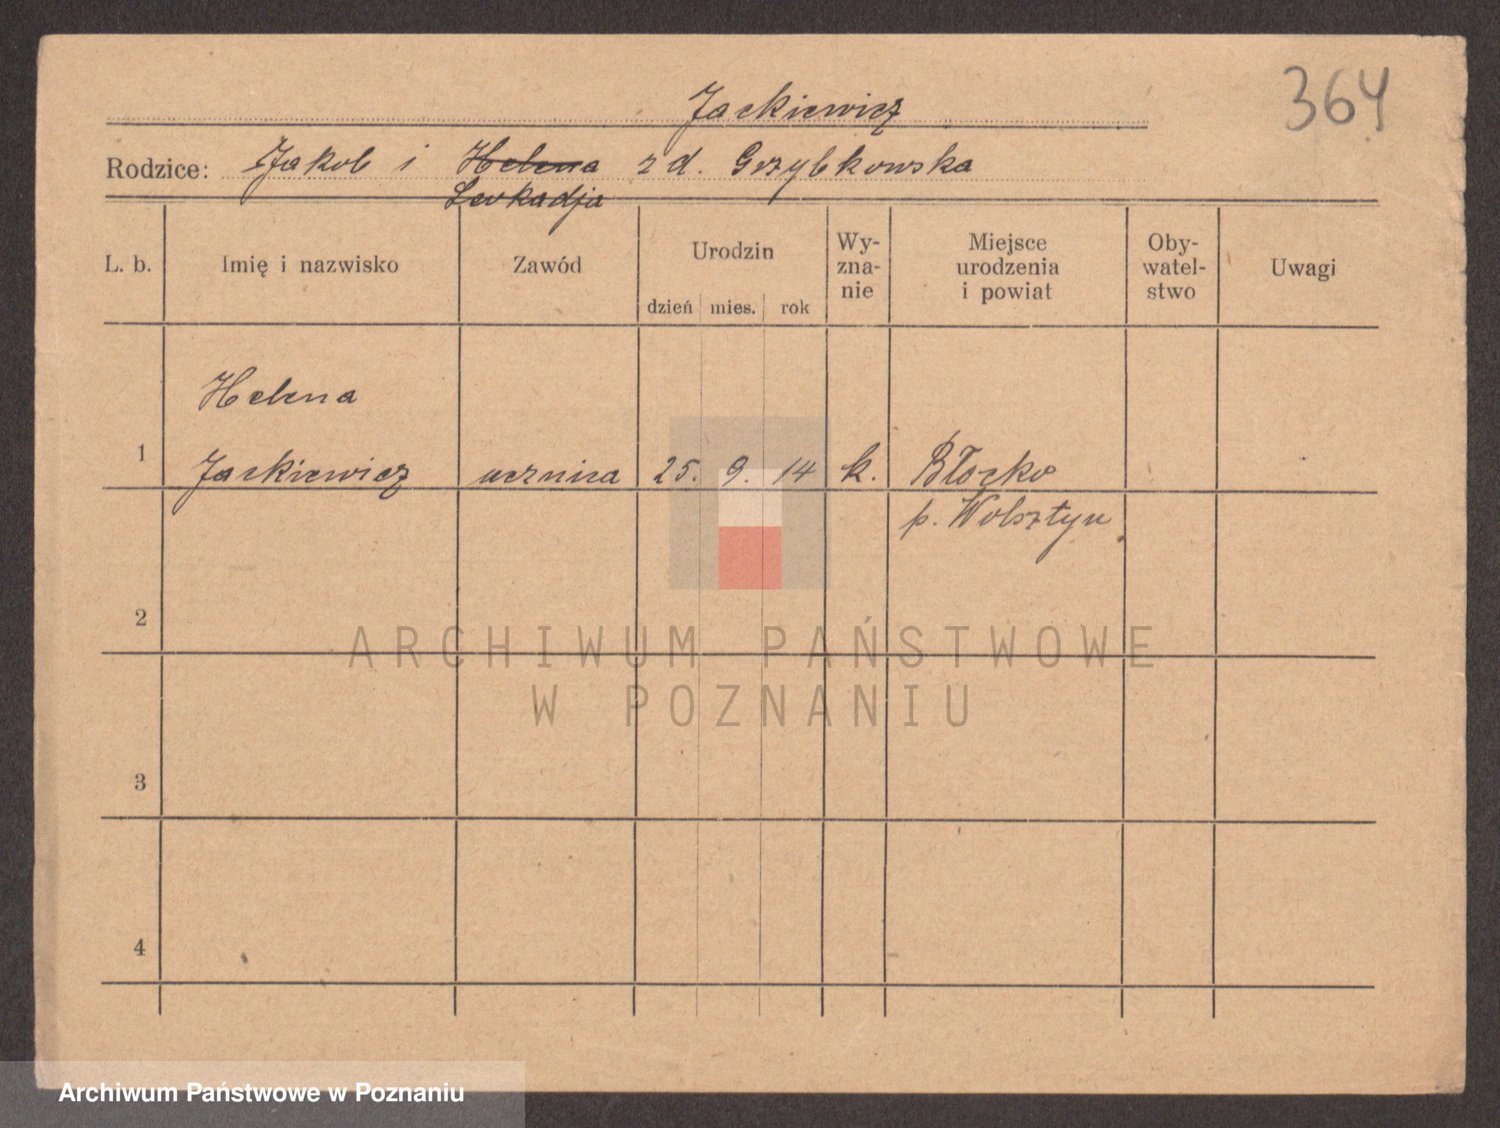 364
Jackiewicz
Rodzice: Jakob i Helena z d. Grzybkowska
Leokadja
L. b. Imię i nazwisko Zawód Urodzin dzień mies. rok Wy-zna-nie Miejsce urodzenia i powiat Oby-watel-stwo Uwagi
Helena
1 Jackiewicz ucznica 25. 9. 14 k. Błocko
p. Wolsztyn
2
ARCHIWUM PAŃSTWOWE
W POZNANIU
3
4
Archiwum Państwowe w Poznaniu